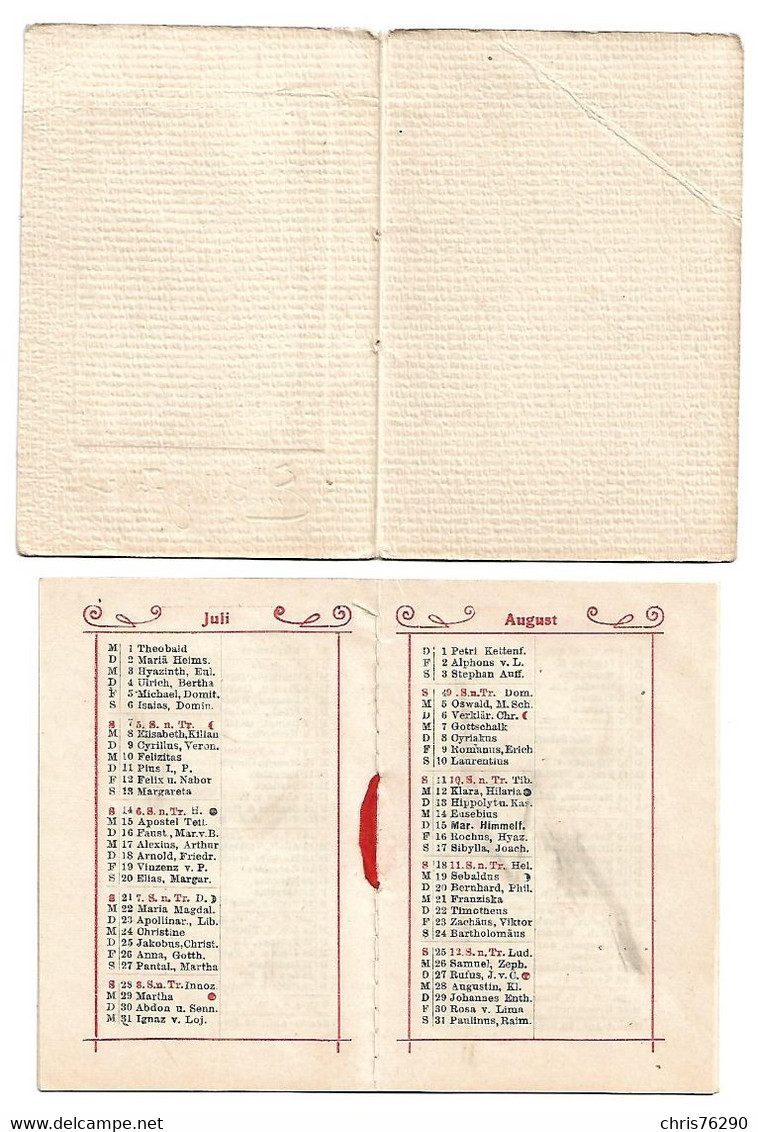 Juli
M 1 Theobald
D 2 Mariä Heims.
M 3 Hyazinth, Eul.
D 4 Ulrich, Bertha
F 5 Michael, Domit.
S 6 Isaias, Domin.
S 7 5. S. n. Tr. ☾
M 8 Elisabeth, Kilian
D 9 Cyrillus, Veron.
M 10 Felizitas
D 11 Pius I., P.
F 12 Felix u. Nabor
S 13 Margareta
S 14 6. S. n. Tr. H.
M 15 Apostel Teil.
D 16 Faust., Mar. v. B.
M 17 Alexius, Arthur
D 18 Arnold, Friedr.
F 19 Vinzenz v. P.
S 20 Elias, Margar.
S 21 7. S. n. Tr. D. ☽
M 22 Maria Magdal.
D 23 Apollinar., Lib.
M 24 Christine
D 25 Jakobus, Christ.
F 26 Anna, Gotth.
S 27 Pantal., Martha
S 28 8. S. n. Tr. Innoz.
M 29 Martha
D 30 Abdon u. Senn.
M 31 Ignaz v. Loj.
August
D 1 Petri Kettenf.
F 2 Alphons v. L.
S 3 Stephan Auff.
S 4 9. S. n. Tr. Dom.
M 5 Oswald, M. Sch.
D 6 Verklär. Chr. ☾
M 7 Gottschalk
D 8 Cyriakus
F 9 Romanus, Erich
S 10 Laurentius
S 11 10. S. n. Tr. Tib.
M 12 Klara, Hilaria
D 13 Hippolyt u. Kas.
M 14 Eusebius
D 15 Mar. Himmelf.
F 16 Rochus, Hyaz.
S 17 Sibylla, Joach.
S 18 11. S. n. Tr. Hel.
M 19 Sebaldus ☽
D 20 Bernhard, Phil.
M 21 Franziska
D 22 Timotheus
F 23 Zachäus, Viktor
S 24 Bartholomäus
S 25 12. S. n. Tr. Lud.
M 26 Samuel, Zeph.
D 27 Rufus, J. v. C.
M 28 Augustin, Kl.
D 29 Johannes Enth.
F 30 Rosa v. Lima
S 31 Paulinus, Raim.
DELCAMPE
chris76290